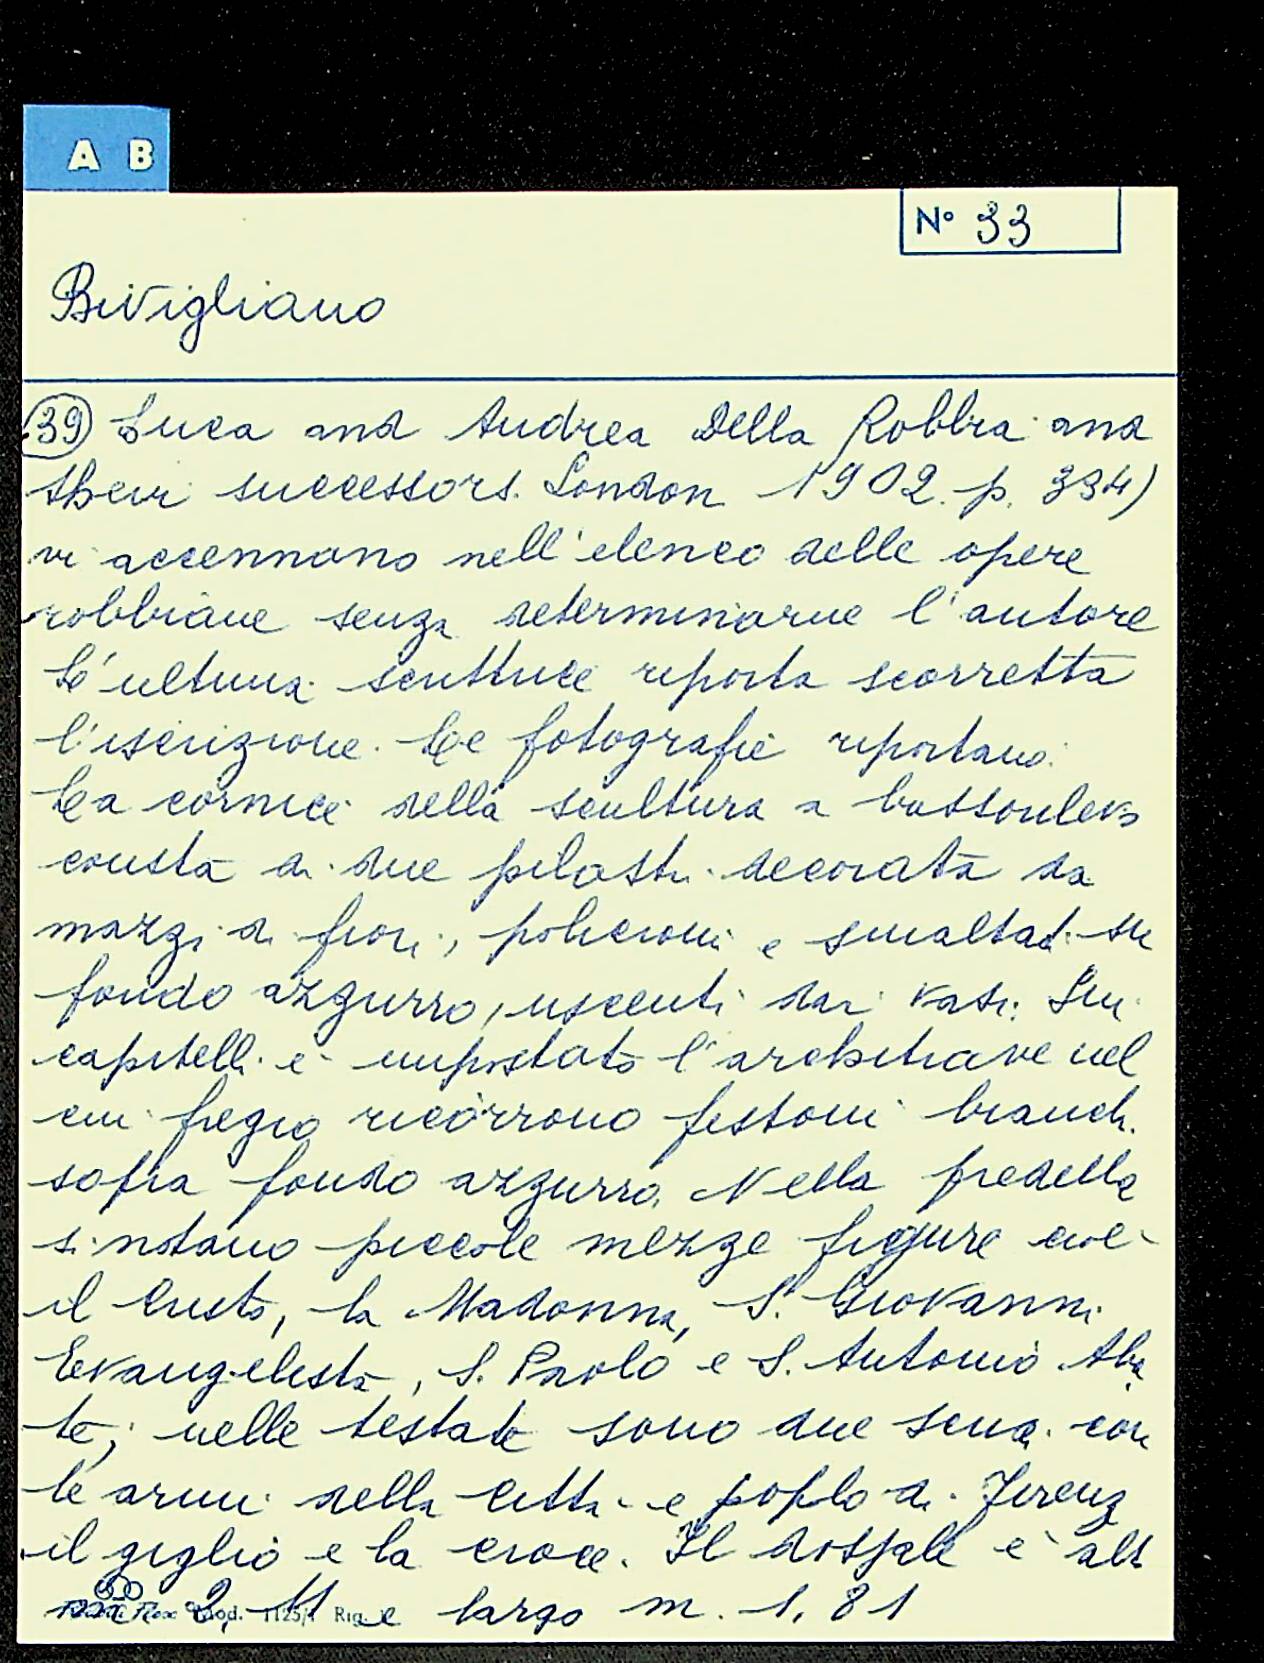 A B
N° 33
Bivigliano
39) Luca and Andrea Della Robbia and
their successors. London 1902. p. 334)
vi accennano nell'elenco delle opere
robbiane senza determinarne l'autore
L'ultima scrittrice riporta scorretta
l'iscrizione. Le fotografie riportano:
La cornice della scultura a bassorilevo
consta di due pilastri decorata da
mazzi di fiori, policromi e smaltati su
fondo azzurro, uscenti dai vasi. Sui
capitelli è impostato l'architrave nel
cui fregio ricorrono festoni bianchi
sopra fondo azzurro. Nella predella
si notano piccole mezze figure cioè
il Cristo, la Madonna, S. Giovanni
Evangelista, S. Paolo e S. Antonio Aba
te; nelle testate sono due scudi con
le armi della città e poplo di Firenz
il giglio e la croce. Il dossale è alt
m 2,11 e largo m. 1,81
Mod. 1125/1 Rig.